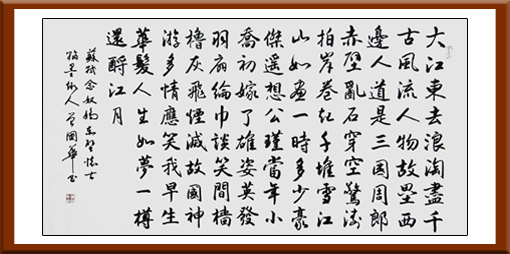 大江東去浪淘盡千
古風流人物故壘西
邊人道是三国周郎
赤壁亂石穿空驚濤
拍岸卷起千堆雪江
山如畫一時多少豪
傑遥想公瑾當年小
喬初嫁了雄姿英發
羽扇綸巾談笑間檣
櫓灰飛煙滅故國神
游多情應笑我早生
華髮人生如夢一樽
還酹江月
蘇軾念奴嬌赤壁懷古
人曾國華書